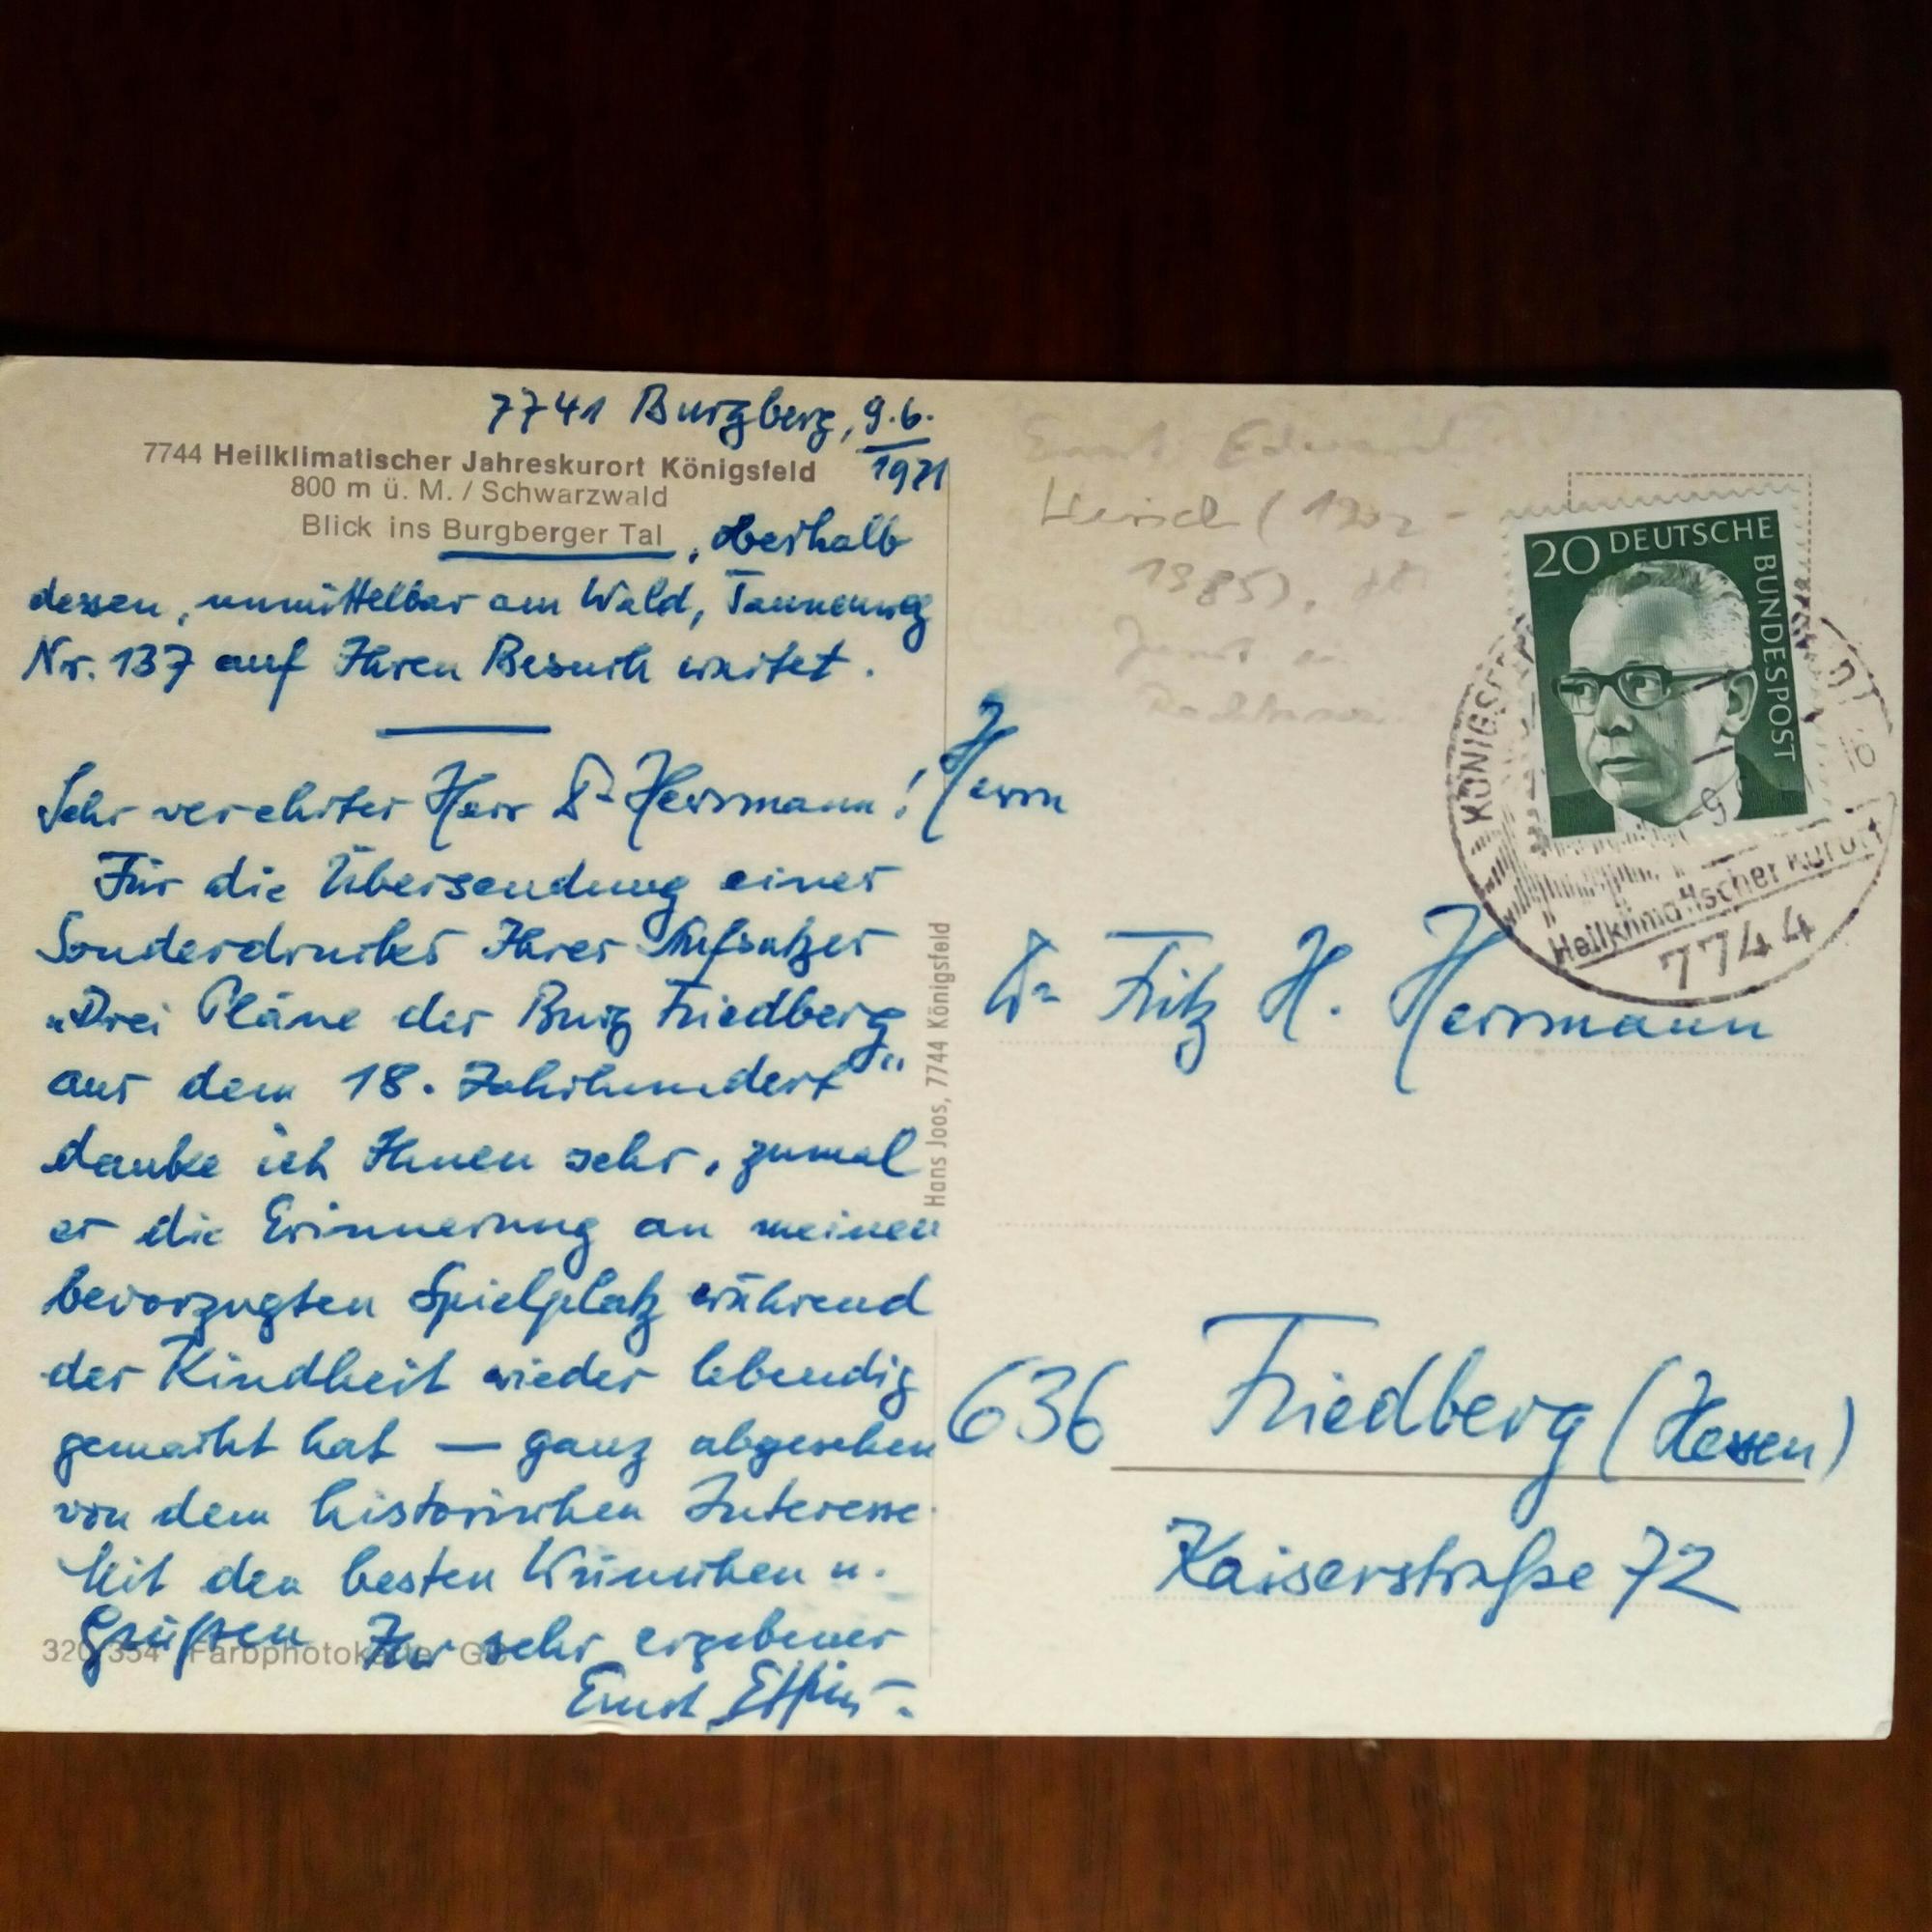 7741 Burgberg, 9.6.
1971
7744 Heilklimatischer Jahreskurort Königsfeld
800 m ü. M. / Schwarzwald
Blick ins Burgberger Tal, oberhalb
dessen, unmittelbar am Wald, Tannenweg
Nr. 137 auf Ihren Besuch wartet.
Sehr verehrter Herr Dr Herrmann!
Für die Übersendung eines
Sonderdruckes Ihres Aufsatzes
„Drei Pläne der Burg Friedberg
aus dem 18. Jahrhundert“
danke ich Ihnen sehr, zumal
er die Erinnerung an meinen
bevorzugten Spielplatz während
der Kindheit wieder lebendig
gemacht hat — ganz abgesehen
von dem historischen Interesse.
Mit den besten Wünschen u.
Grüßen Ihr sehr ergebener
Ernst
320/354 Farbphotokarte
Hans Joos, 7744 Königsfeld
Ernst Eduard
Hirsch (1902-
1985), dt.
Jurist
20 DEUTSCHE
BUNDESPOST
KÖNIGSF
Heilklimatischer Kurort
7744
Herrn
Dr Fritz H. Herrmann
636 Friedberg (Hessen)
Kaiserstraße 72